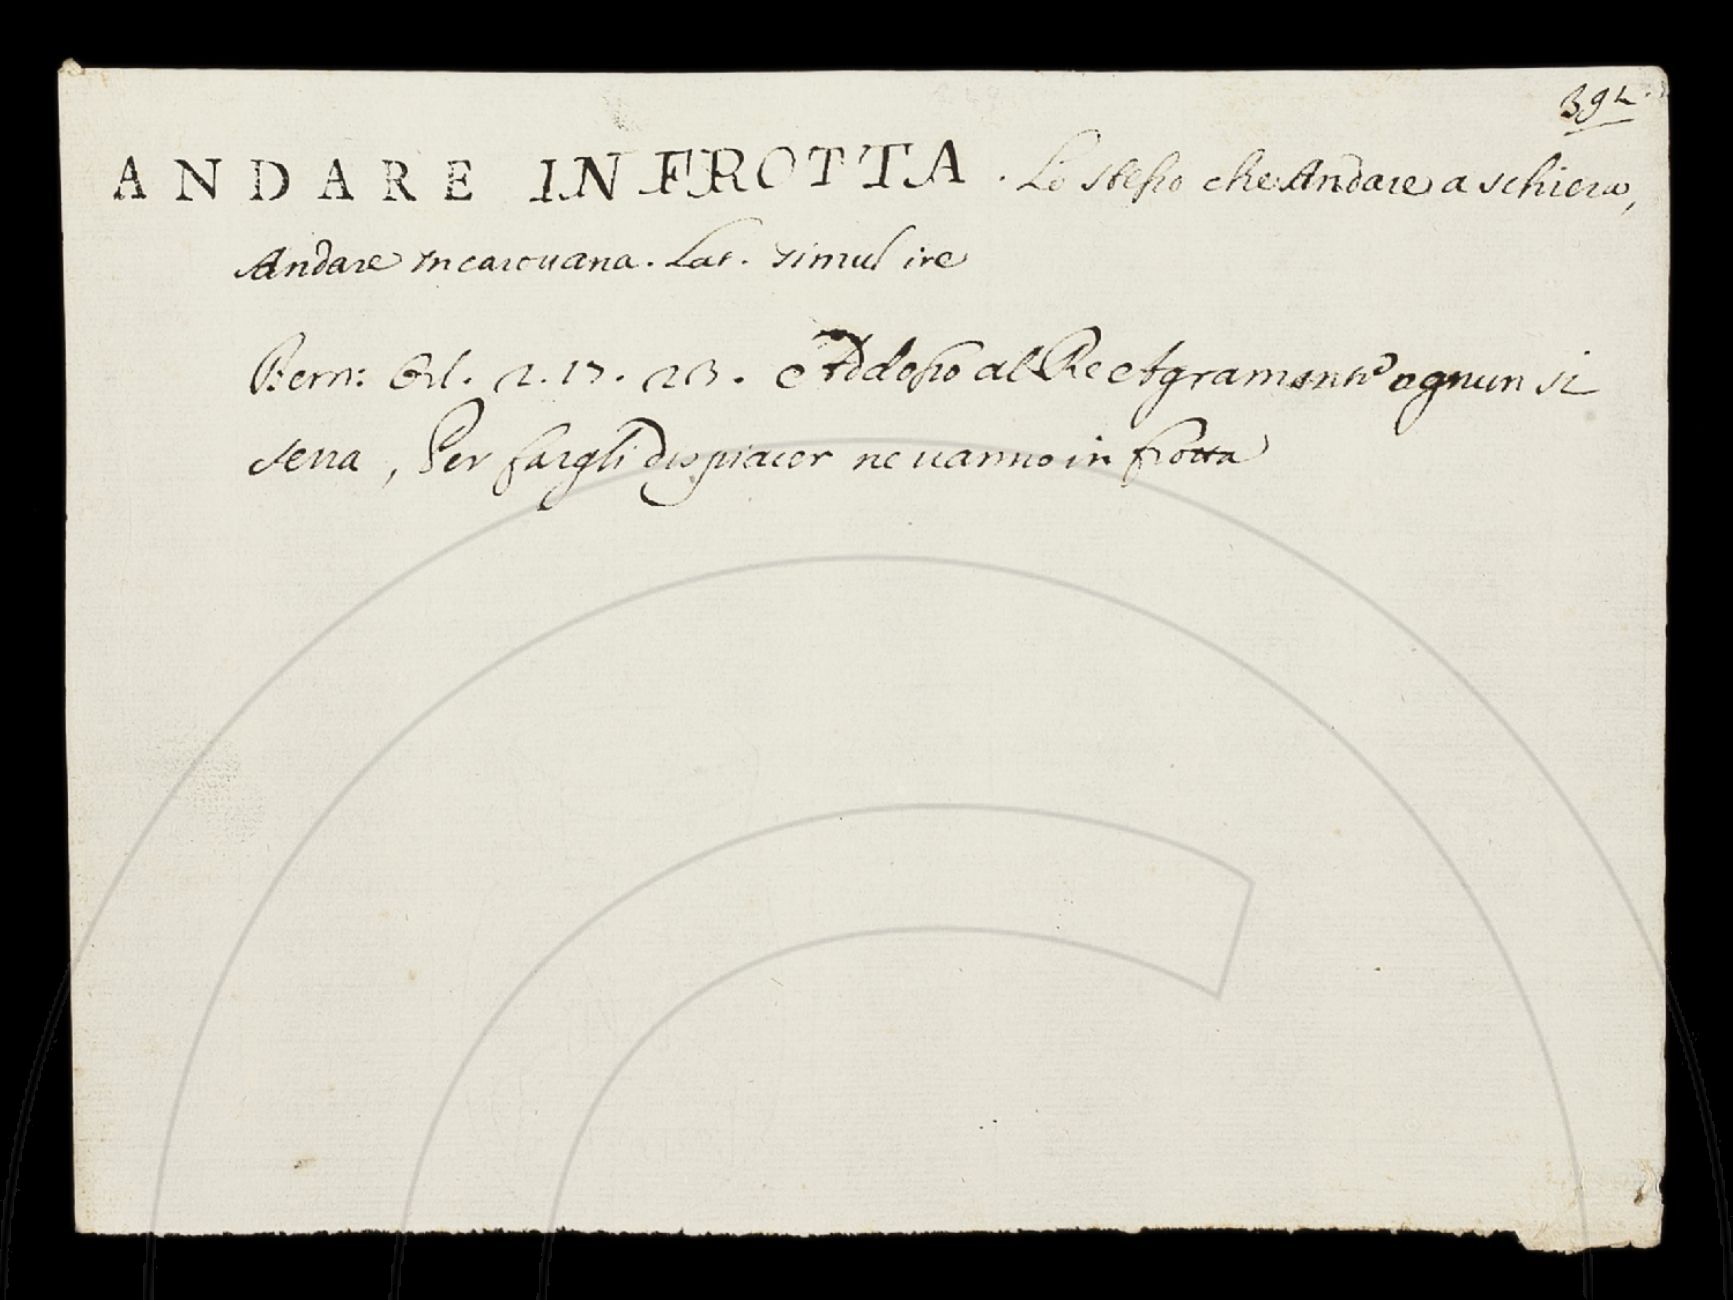 392.
ANDARE IN FROTTA. Lo stesso che Andare a schiera,
Andare in carovana. Lat. simul ire
Bern: Orl. 2. 17. 23. Addosso al Re Agramante ognun si
serra, Per fargli dispiacer ne vanno in frotta